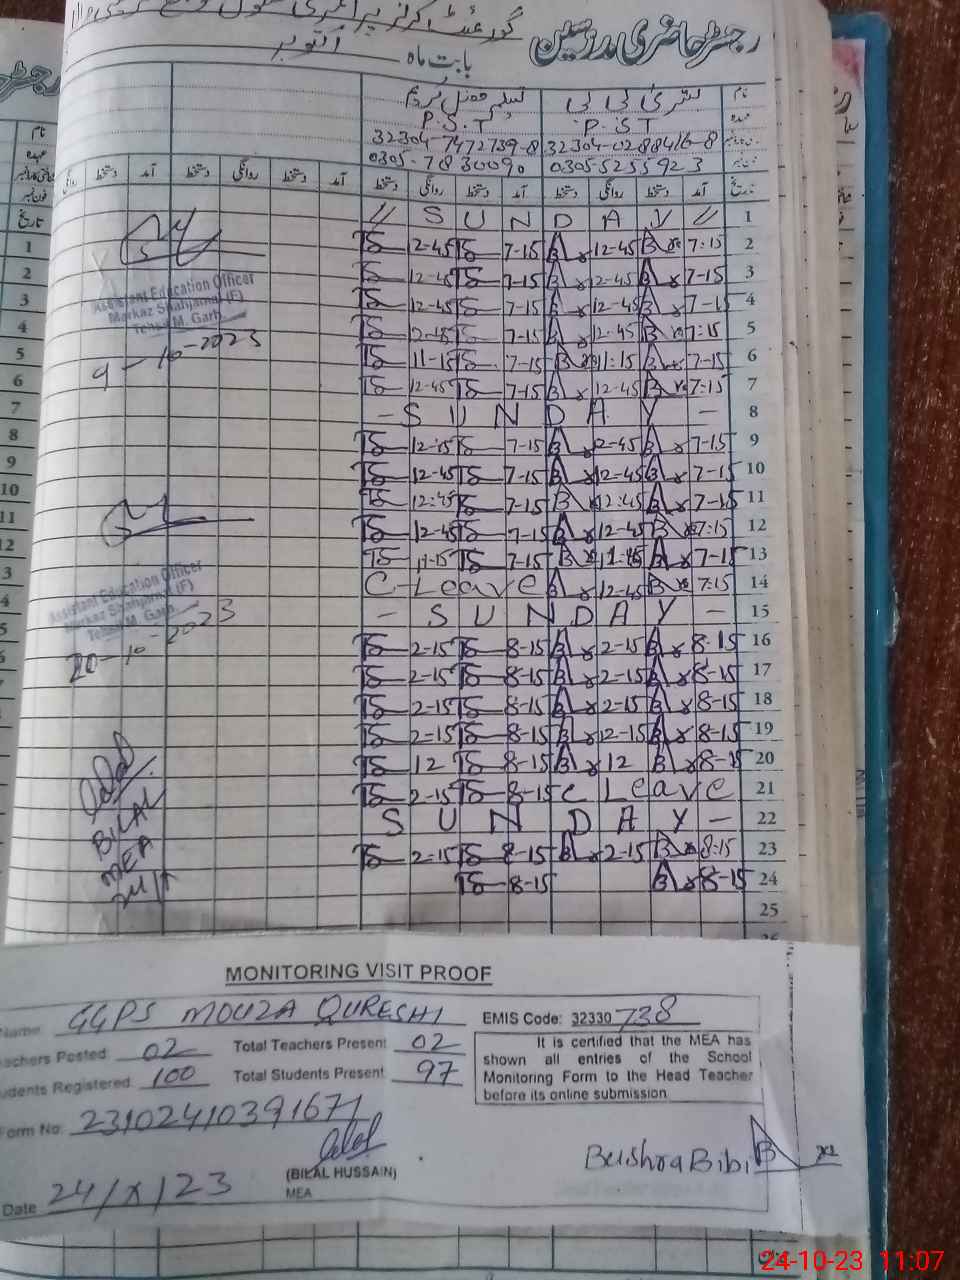 رجسٹر حاضری مدرسین
بابت ماہ اکتوبر
نام
P.S.T P.ST
32304-7472739-8 32304-0288416-8
0305-7830090 03055255923
آمد دستخط روانگی دستخط آمد دستخط روانگی دستخط تاریخ
// S U N D A Y // 1
12-45 7-15 12-45 7:15 2
12-45 7-15 12-45 7-15 3
12-45 7-15 12-45 7-15 4
12-45 7-15 12-45 7:15 5
11-15 7-15 11:15 7-15 6
12-45 7-15 12-45 7:15 7
- S U N D A Y - 8
12-45 7-15 12-45 7-15 9
12-45 7-15 12-45 7-15 10
12:45 7-15 12:45 7-15 11
12-45 7-15 12-45 7:15 12
11-15 7-15 7-15 13
C-Leave 12-45 7:15 14
- S U N D A Y - 15
2-15 8-15 2-15 8-15 16
2-15 8-15 2-15 8-15 17
2-15 8-15 2-15 8-15 18
2-15 8-15 12-15 8-15 19
12 8-15 12 8-15 20
2-15 8-15 C Leave 21
S U N D A Y - 22
2-15 8-15 2-15 8:15 23
8-15 8-15 24
25
Assistant Education Officer
Markaz Shahjamal (F)
Tehsil M. Garh
9-10-2023
Assistant Education Officer
Markaz Shahjamal (F)
Tehsil M. Garh
20-10-2023
BILAL
MEA
MONITORING VISIT PROOF
Name GGPS MOUZA QURESHI EMIS Code: 32330738
achers Posted 02 Total Teachers Present 02
udents Registered 100 Total Students Present 97
It is certified that the MEA has
shown all entries of the School
Monitoring Form to the Head Teacher
before its online submission
Form No. 23102410391671
(BILAL HUSSAIN)
MEA
Bushra Bibi
Date 24/X/23
24-10-23 11:07